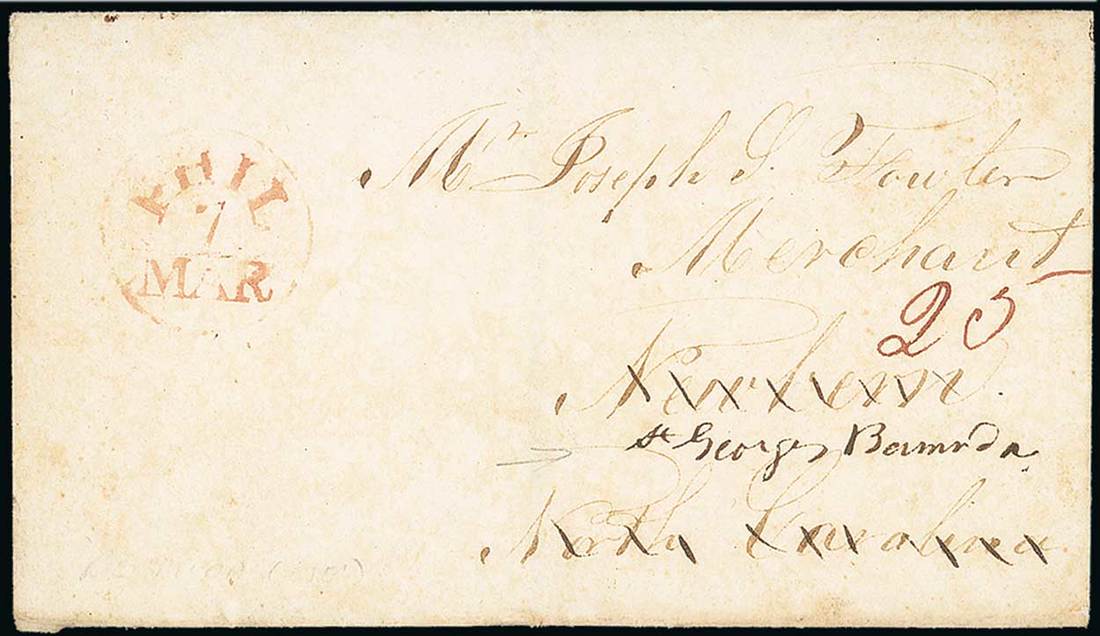 PHIL
7
MAR
Mr Joseph S. Fowler
Merchant
25
Newbern.
St Georges Bamuda
North Carolina